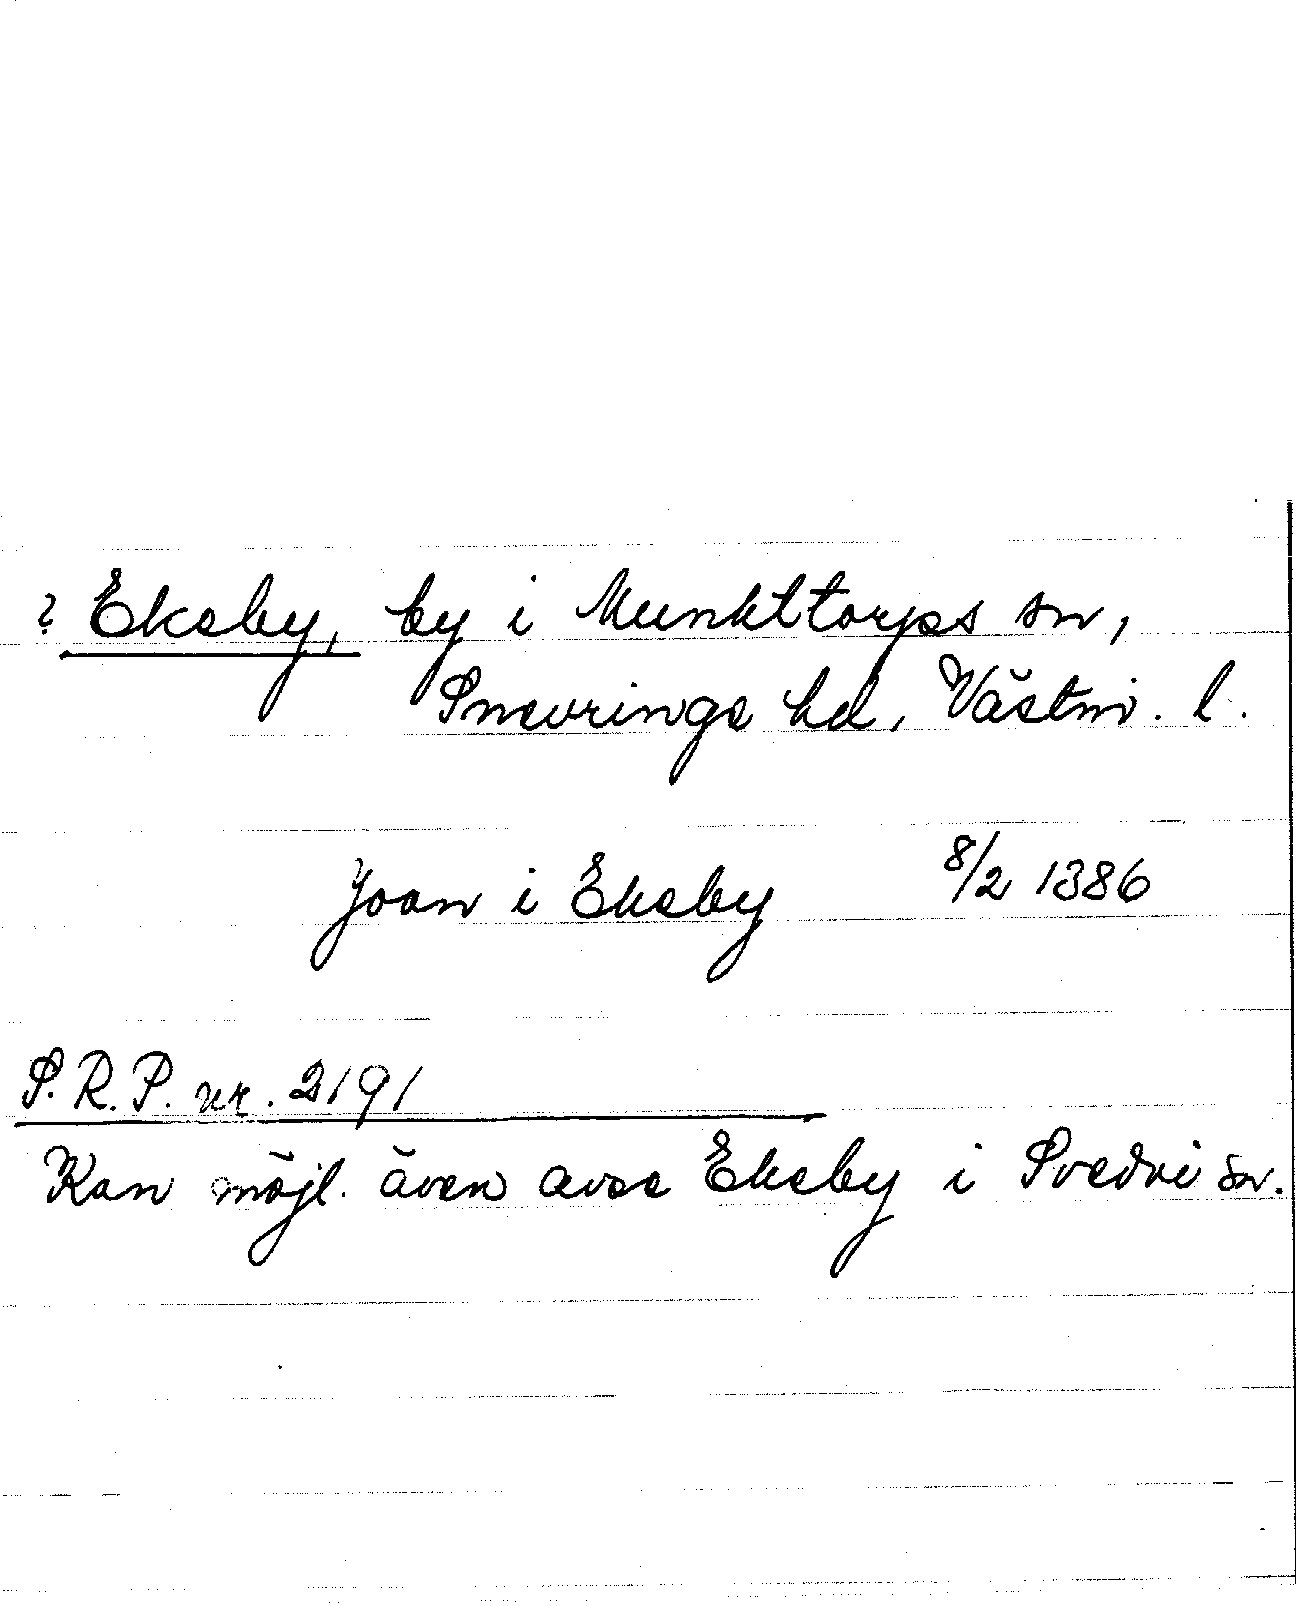 ? Ekeby, by i Munktorps sn,
Snevringe hd, Västm. l.
Joan i Ekeby 8/2 1386
S.R.P. nr. 2191
Kan möjl. även avse Ekeby i Svedvi sn.